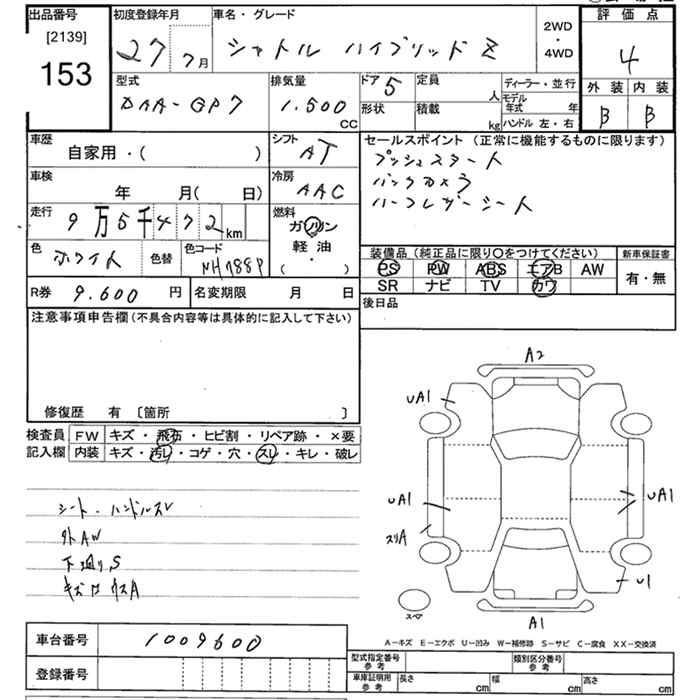 出品番号
[2139]
153
初度登録年月
27 7月
車名・グレード
シャトル ハイブリッド Z
2WD
・
4WD
評価点
4
外装 内装
B B
型式
DAA-GP7
排気量
1.500
CC
ドア 5
形状
定員
人
積載
kg
ディーラー・並行
モデル年式 年
ハンドル 左・右
車歴
自家用・( )
シフト
AT
セールスポイント(正常に機能するものに限ります)
プッシュスタート
バックカメラ
ハーフレザーシート
車検
年 月( 日)
冷房
AAC
走行
9万5千472km
燃料
ガソリン
軽油
・
( )
色
ホワイト
色替
色コード
NH788P
装備品(純正品に限り○をつけてください)
PS PW ABS エアB AW
SR ナビ TV カワ
新車保証書
有・無
R券 9.600 円
名変期限 月 日
後日品
注意事項申告欄(不具合内容等は具体的に記入して下さい)
修復歴 有 〔箇所 〕
検査員記入欄
FW キズ・飛石・ヒビ割・リペア跡・×要
内装 キズ・汚レ・コゲ・穴・スレ・キレ・破レ
シート・ハンドルスレ
外AW
下廻りS
A2
UA1
UA1
UA1
スリA
U1
スペア
A1
A-キズ E-エクボ U-凹み W-補修跡 S-サビ C-腐食 XX-交換済
車台番号 1009600
登録番号
型式指定番号
参考
類別区分番号
参考
車庫証明用
参考
長さ cm 幅 cm 高さ cm